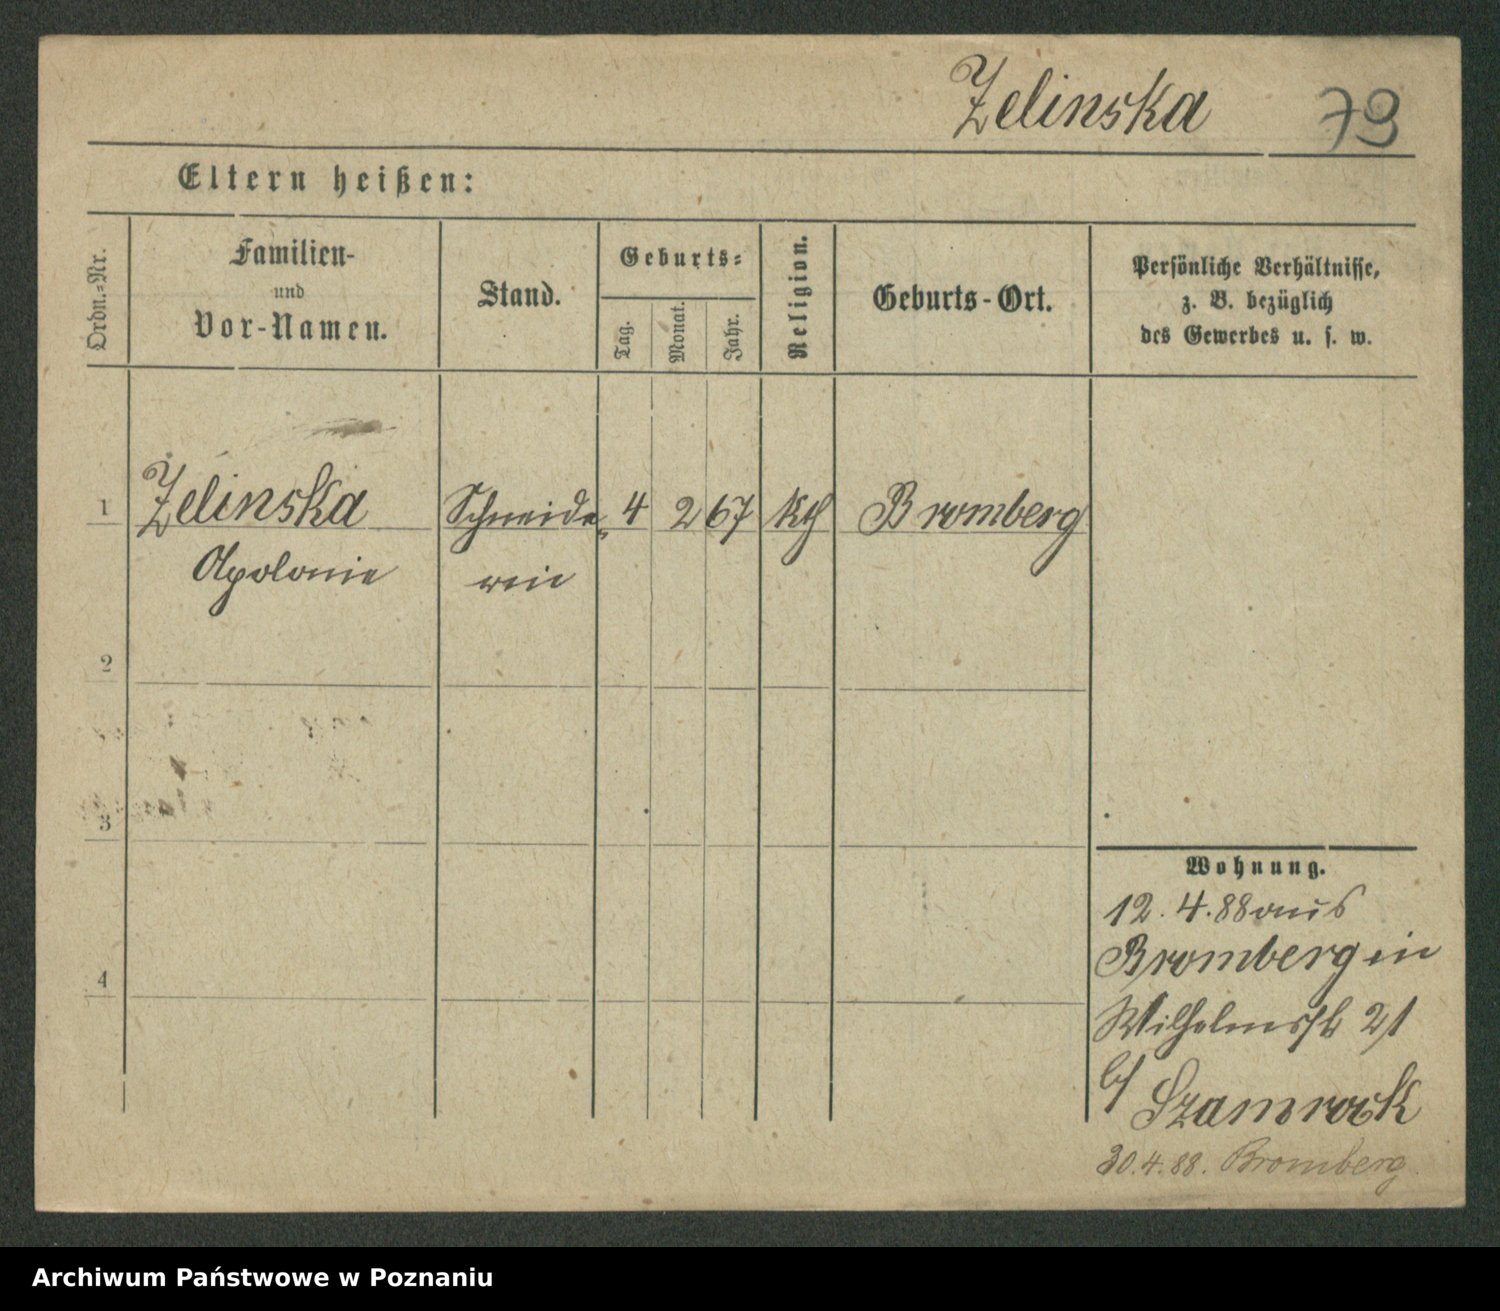 Zelinska 79
Eltern heißen:
Ordn.=Nr.
Familien-
und
Vor-Namen.
Stand.
Geburts=
Tag.
Monat.
Jahr.
Religion.
Geburts-Ort.
Persönliche Verhältnisse,
z. B. bezüglich
des Gewerbes u. s. w.
1 Zelinska Schneide= 4 2 67 kth Bromberg
Apolonie rin
2
3
4
Wohnung.
12. 4. 88 aus
Bromberg in
Wilhelmstr 21
b/ Szamrock
30.4.88. Bromberg.
Archiwum Państwowe w Poznaniu